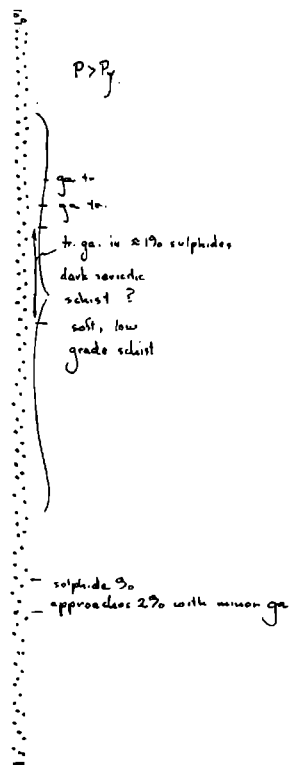 P > Py
ga tr
ga tr.
tr. ga. in ≈ 1% sulphides
dark sericitic
schist ?
soft, low
grade schist
sulphide %
approaches 2% with minor ga